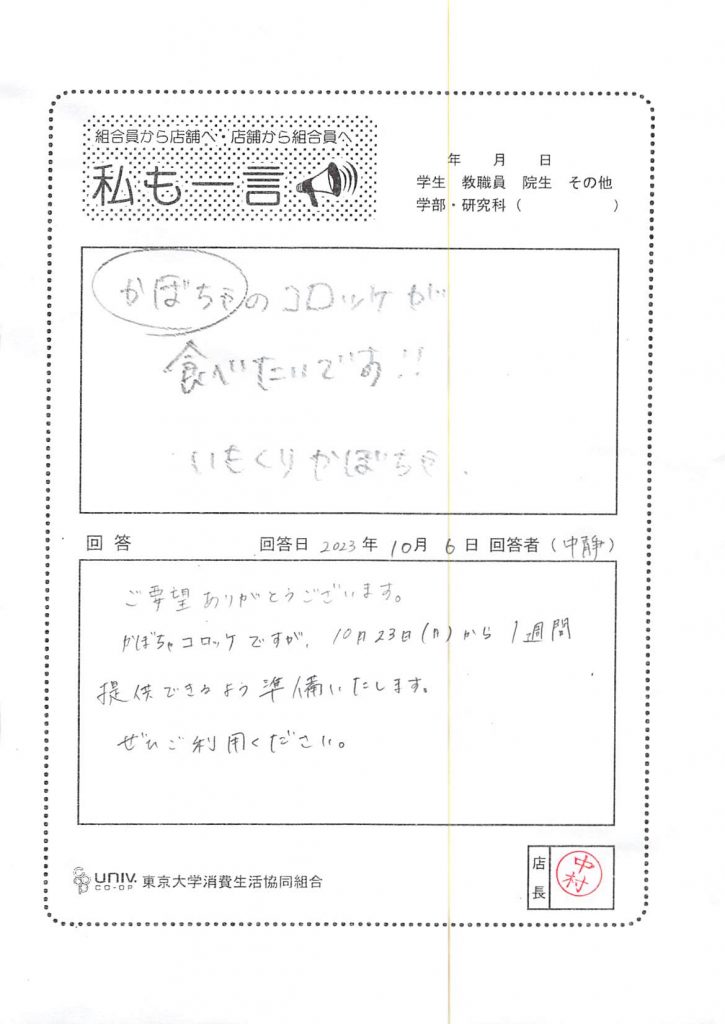 組合員から店舗へ・店舗から組合員へ
私も一言
年 月 日
学生 教職員 院生 その他
学部・研究科( )
かぼちゃのコロッケが
食べたいです!!
いもくりかぼちゃ、
回答 回答日 2023年 10月 6日 回答者(中静)
ご要望ありがとうございます。
かぼちゃコロッケですが、10月23日(月)から1週間
提供できるよう準備いたします。
ぜひご利用ください。
UNIV. CO-OP 東京大学消費生活協同組合
店長 中村